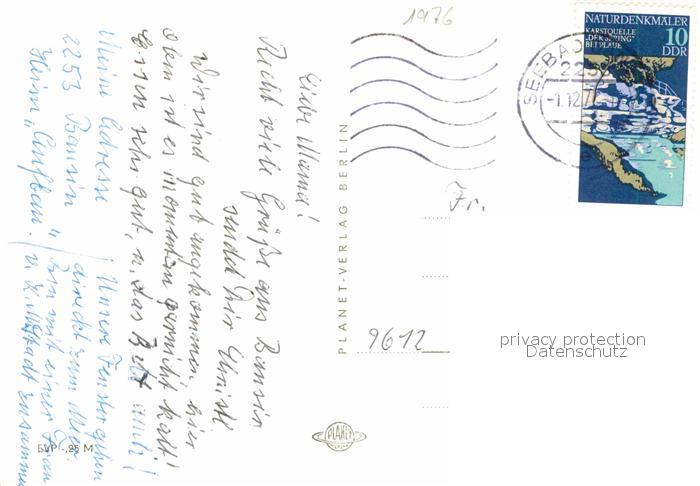 1976
NATURDENKMÄLER
KARSTQUELLE
"DER SPRING"
BEI PLAUE
10
DDR
SEEBAD
225
-1.12.7
Liebe Mama!
Recht viele Grüße aus Bansin
sendet Dir
Wir sind gut angekommen, hier
oben ist es momentan garnicht kalt!
Essen sehr gut, u. das Bett auch!
Meine Adresse
2253 Bansin
Heim "Aufbau"
Unsere Fenster gehen
direkt zum Meer
Bin mit einer Frau
zusammen
PLANET-VERLAG BERLIN
Fr.
9612
privacy protection
Datenschutz
PLANET
EVP -,25 M